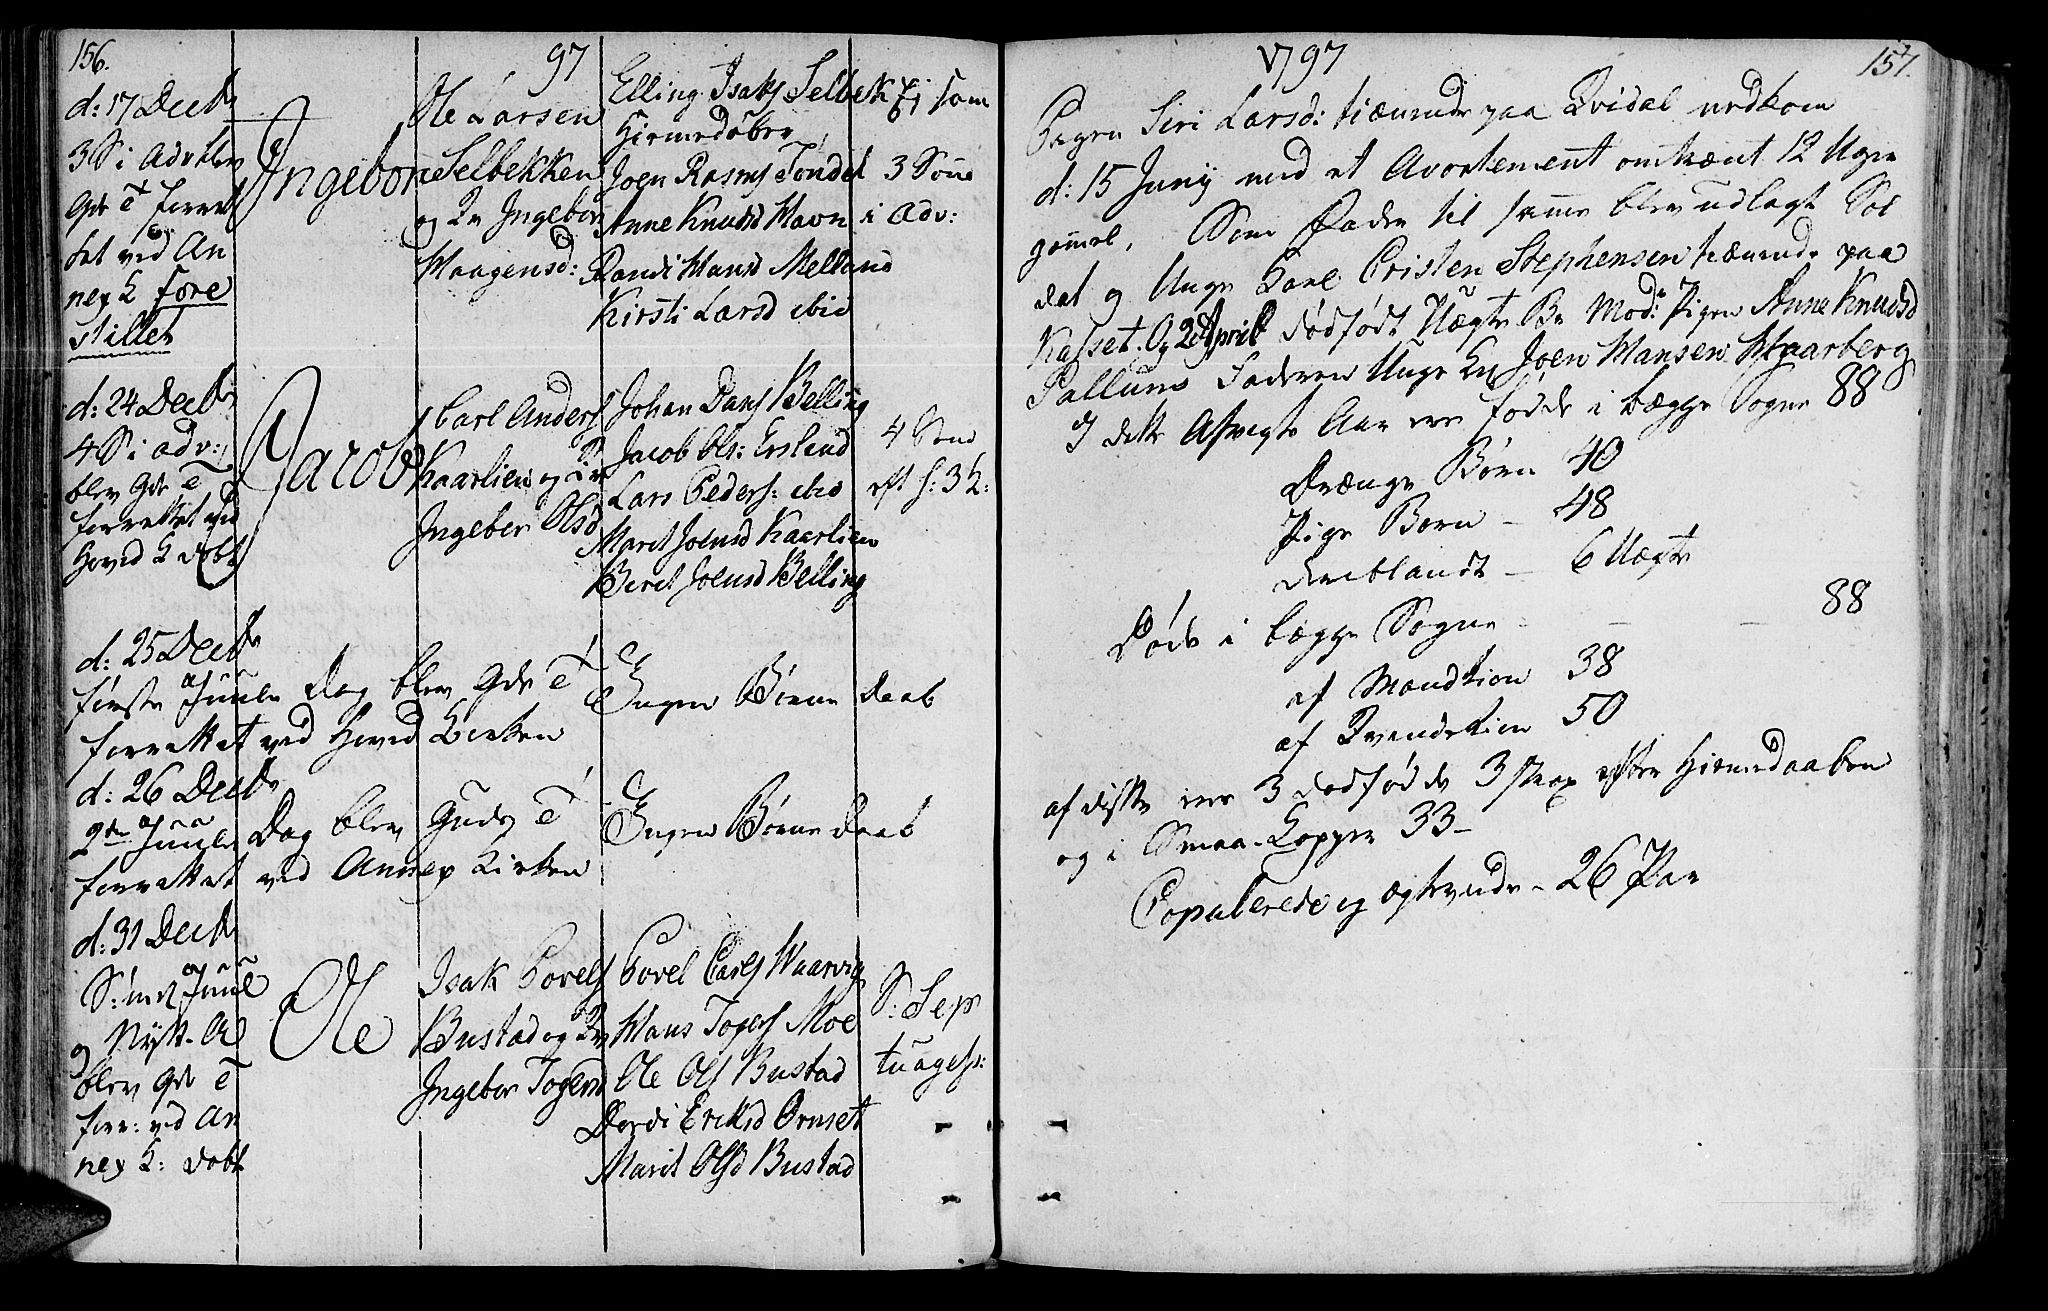 156.
97
d: 17 Decbr
3 S i Adv blev
Gds T forret
tet ved An
nex K fore
stillet
Ingebor
Ole Larsen
Selbekken
og Qv Ingebor
Haagensd:
Elling Isaks Selbek
Hiemedøber
Joen Rasms Tondel
Anne Knudsd Havn
Randi Hansd Melland
Kirsti Larsd ibid
Ej som
3 Sone
i Adv:
d: 24 Decbr
4 S i adv:
blev Gds T
forrettet ved
Hoved K døbt
Jacob
Carl Anders
Kaarlien og Qv
Ingebor Olsd
Johan Dans Belling
Jacob Ols: Ersland
Lars Peders: ibid
Marit Joensd Kaarlien
Berit Joensd Belling
4 Sønd
eft h: 3 K:
d: 25 Decbr
første Juule Dag blev Gds T
forrettet ved Hoved Kirken
Ingen Børne daab
d: 26 Decbr
2den Juule Dag blev Guds T
forrettet ved Annex Kirken
Ingen Børne daab
d: 31 Decbr
S: imel Juul
og Nytt. A
blev Gds T
forr: ved An
nex K: døbt
Ole
Isak Povels
Bustad og Qv
Ingebor Togersd
Povel Carls Waarvig
Hans Togers Moe
Ole Ols Bustad
Dordi Eriksd Ornset
Marit Olsd Bustad
S: Sep
tuages:
1797
157.
Pigen Siri Larsd: tiænende paa Qvidal nedkom
d: 15 Junij med et Avortement omtrænt 12 Uger
gamel. Som Fader til samme blev udlagt Sol
dat og Unge Karl Cristen Stephensen tiænende paa
Kasset. Og 2 April dødfødt Uægte B Mod: Pigen Anne Knudsd
Pallum Faderen Unge K Joen Hansen Waarberg
I dette Afvigte Aar ere fødde i begge Sogne 88
Drænge Børn 40
Pige Børn - 48
deriblandt - 6 Uægte
Døde i begge Sogne - - - 88
af Mandkion 38
af Qvindekion 50
af disse ere 3 dødfødde 3 strax efter Hiemedaaben
og i Smaa-Kopper 33-
Copulerede og ægteviede - 26 Par